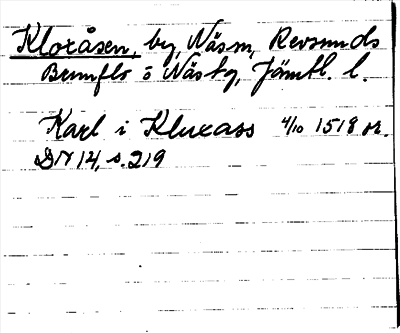 Kloxåsen, by, Näsm, Revsunds
Brunflo o Näs tg, Jämtl. l.
Karl i Kluxaas 4/10 1518 or.
DN 14, s. 219